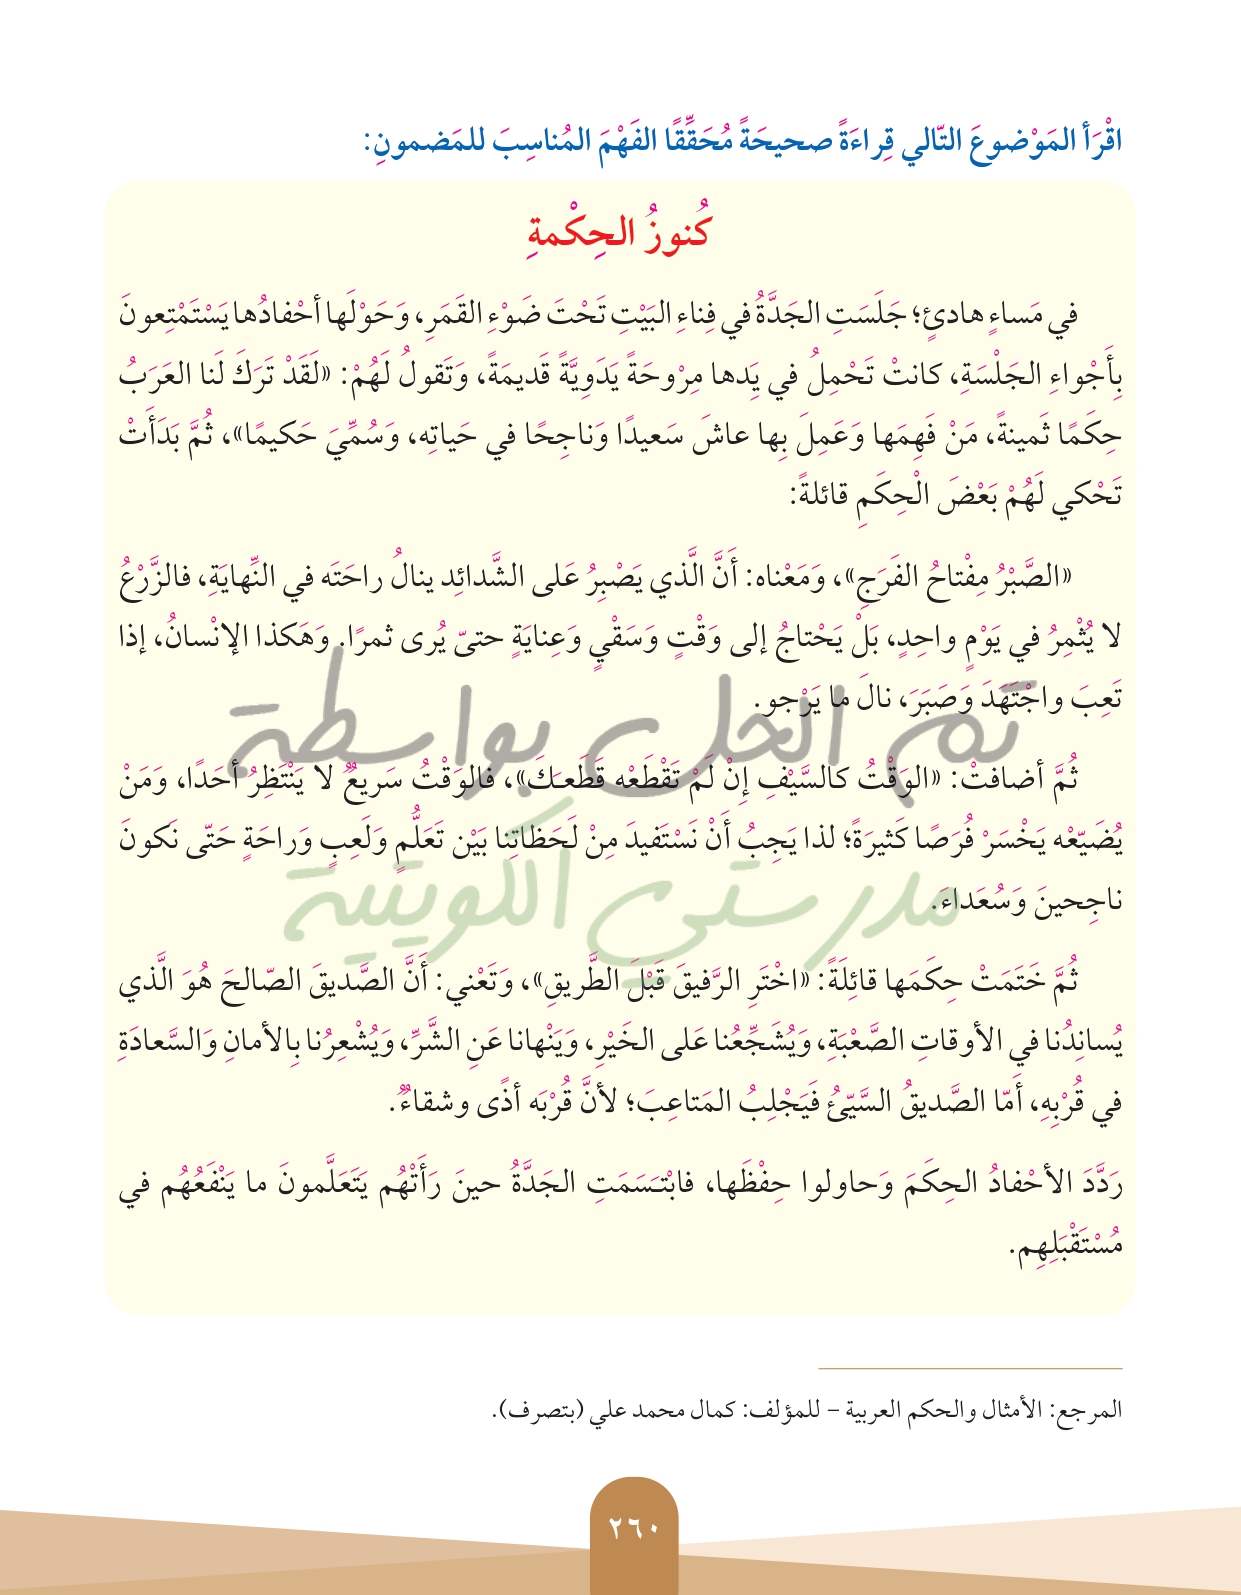 اقْرَأ المَوْضوعَ التّالي قِراءَةً صحيحَةً مُحَقِّقًا الفَهْمَ المُناسِبَ للمَضمونِ:
كُنوزُ الحِكْمةِ
في مَساءٍ هادئٍ؛ جَلَسَتِ الجَدَّةُ في فِناءِ البَيْتِ تَحْتَ ضَوْءِ القَمَرِ، وَحَوْلَها أحْفادُها يَسْتَمْتِعونَ
بِأَجْواءِ الجَلْسَةِ، كانتْ تَحْمِلُ في يَدها مِرْوحَةً يَدَوِيَّةً قَديمَةً، وَتَقولُ لَهُمْ: «لَقَدْ تَرَكَ لَنا العَرَبُ
حِكَمًا ثَمينةً، مَنْ فَهِمَها وَعَمِلَ بِها عاشَ سَعيدًا وَناجِحًا في حَياتِه، وَسُمِّيَ حَكيمًا»، ثُمَّ بَدَأَتْ
تَحْكي لَهُمْ بَعْضَ الْحِكَمِ قائلةً:
«الصَّبْرُ مِفْتاحُ الفَرَجِ»، وَمَعْناه: أَنَّ الَّذي يَصْبِرُ عَلى الشَّدائِد ينالُ راحَتَه في النِّهايَةِ، فالزَّرْعُ
لا يُثْمِرُ في يَوْمٍ واحِدٍ، بَلْ يَحْتاجُ إلى وَقْتٍ وَسَقْيٍ وَعِنايَةٍ حتىّ يُرى ثمرًا. وَهَكذا الإنْسانُ، إذا
تَعِبَ واجْتَهَدَ وَصَبَرَ، نالَ ما يَرْجو.
تم الحل بواسطة
ثُمَّ أضافتْ: «الوَقْتُ كالسَّيْفِ إِنْ لَمْ تَقْطَعْه قَطَعـَكَ»، فالوَقْتُ سَريعٌ لا يَنْتَظِرُ أحَدًا، وَمَنْ
يُضَيّعْه يَخْسَرْ فُرَصًا كَثيرَةً؛ لذا يَجِبُ أَنْ نَسْتَفيدَ مِنْ لَحَظاتِنا بَيْن تَعَلُّمٍ ولَعِبٍ وَراحَةٍ حَتّى نَكونَ
مدرستي الكويتية
ناجِحينَ وَسُعَداءَ.
ثُمَّ خَتَمَتْ حِكَمَها قائِلَةً: «اخْتَرِ الرَّفيقَ قَبْلَ الطَّريقِ»، وَتَعْني: أَنَّ الصَّديقَ الصّالحَ هُوَ الَّذي
يُسانِدُنا في الأوقاتِ الصَّعْبَةِ، وَيُشَجِّعُنا عَلى الخَيْرِ، وَيَنْهانا عَنِ الشَّرِّ، وَيُشْعِرُنا بِالأمانِ وَالسَّعادَةِ
في قُرْبِهِ، أَمّا الصَّديقُ السَّيّئُ فَيَجْلِبُ المَتاعِبَ؛ لأنَّ قُرْبَه أذًى وشقاءٌ.
رَدَّدَ الأحْفادُ الحِكَمَ وَحاولوا حِفْظَها، فابْتـَسَمَتِ الجَدَّةُ حينَ رَأَتْهُم يَتَعَلَّمونَ ما يَنْفَعُهُم في
مُسْتَقْبَلِهِم.
المرجع: الأمثال والحكم العربية – للمؤلف: كمال محمد علي (بتصرف).
٢٦٠